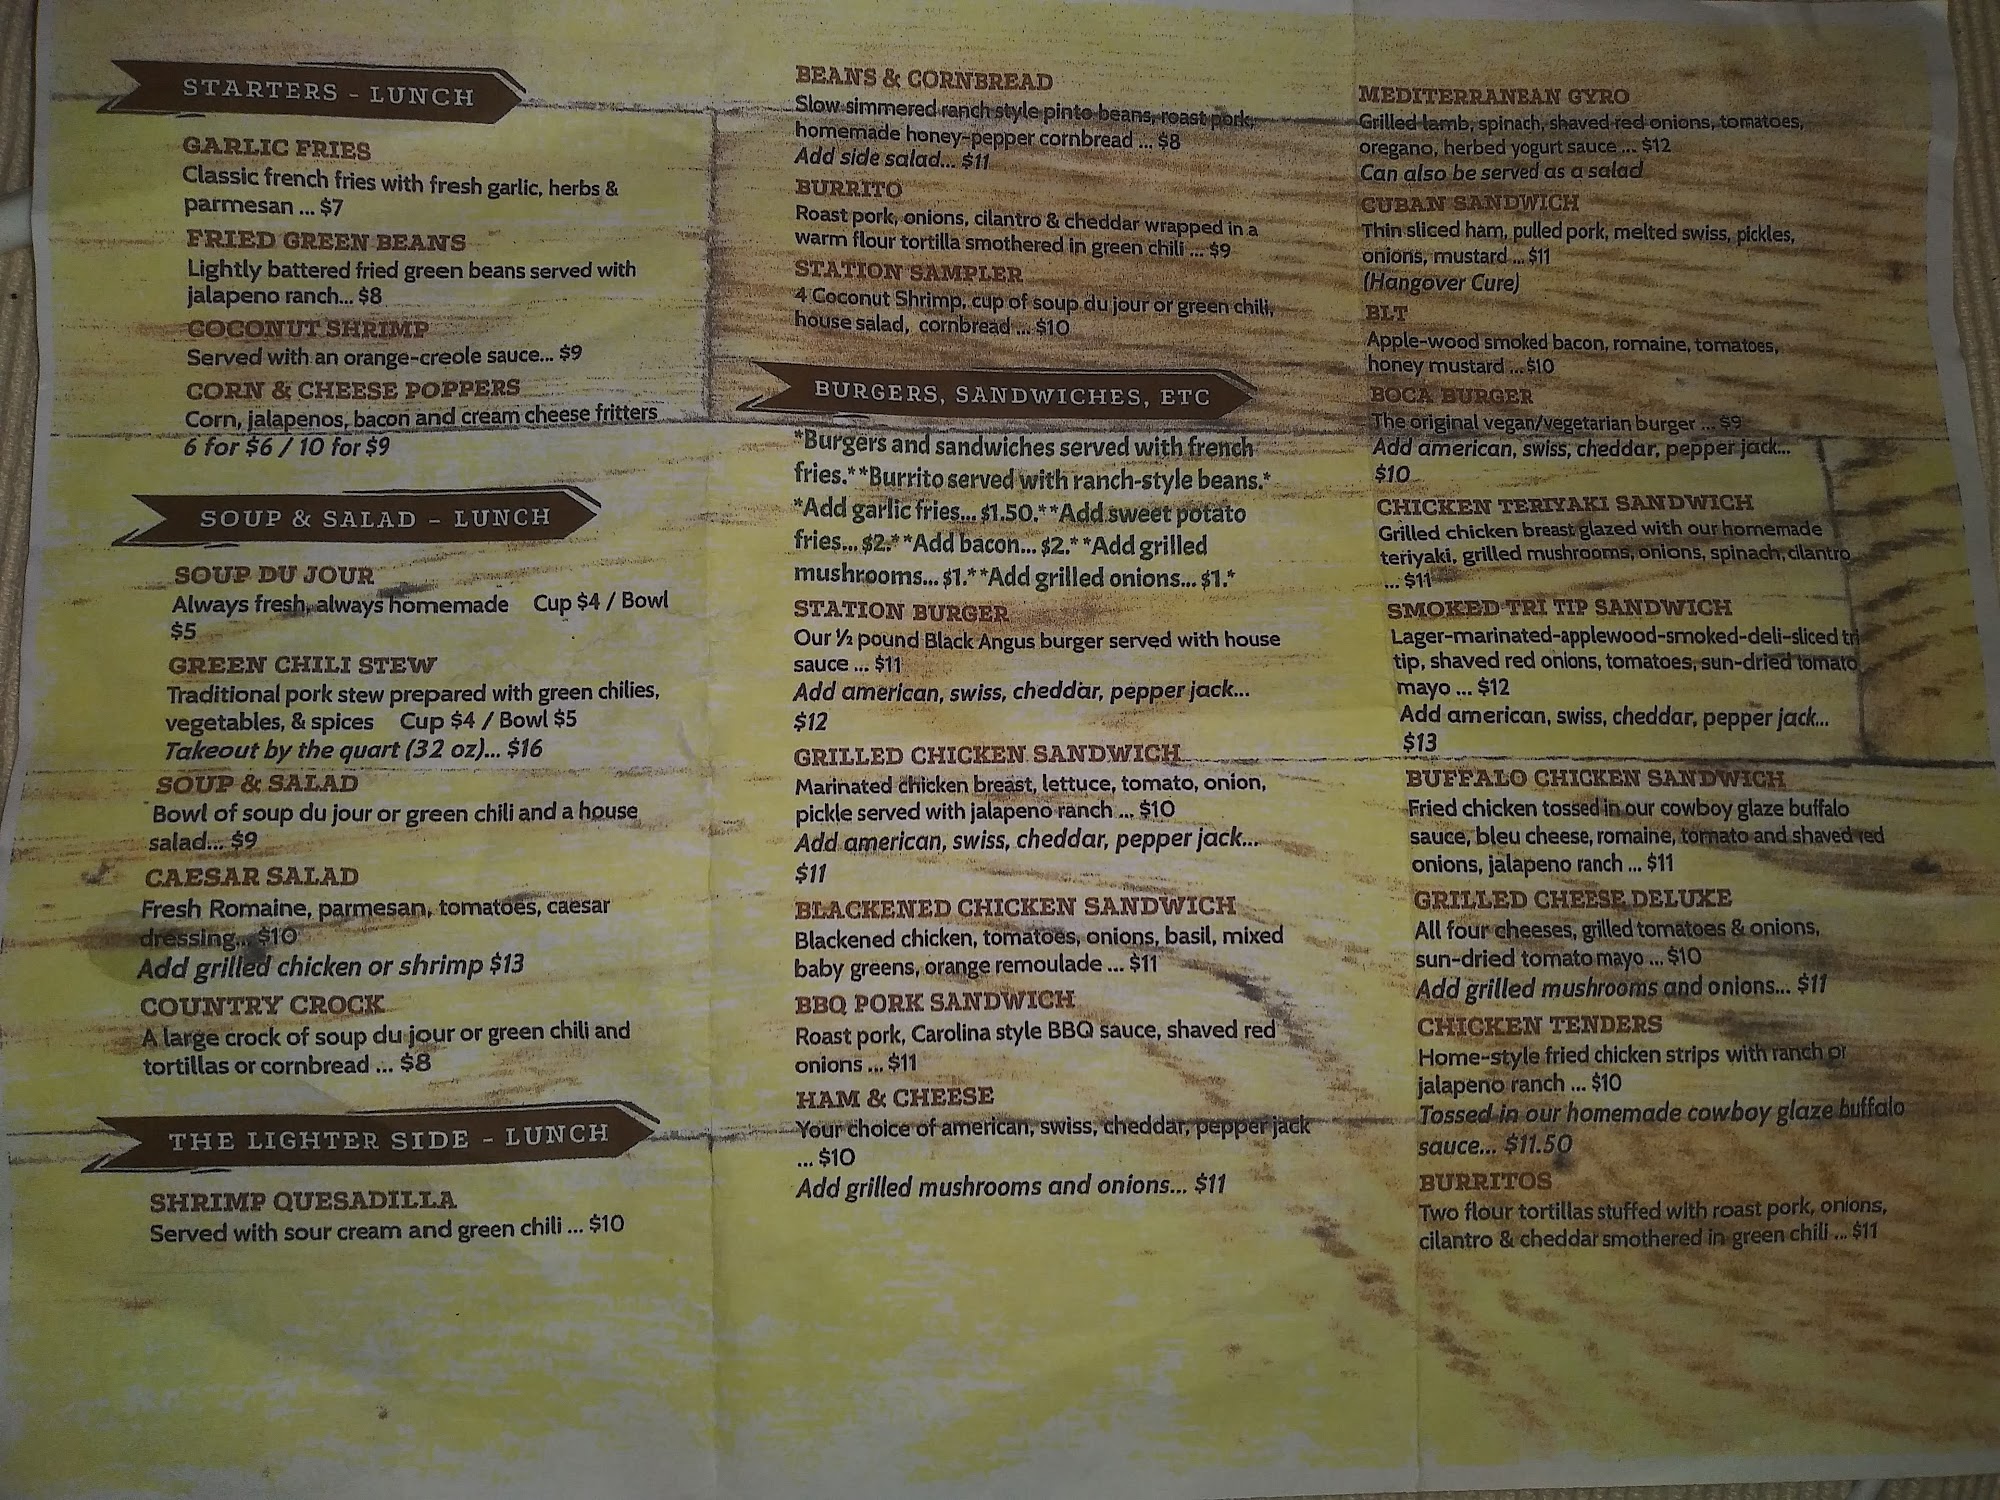 STARTERS - LUNCH
GARLIC FRIES
Classic french fries with fresh garlic, herbs &
parmesan ... $7
FRIED GREEN BEANS
Lightly battered fried green beans served with
jalapeno ranch... $8
COCONUT SHRIMP
Served with an orange-creole sauce... $9
CORN & CHEESE POPPERS
Corn, jalapenos, bacon and cream cheese fritters
6 for $6 / 10 for $9
SOUP & SALAD - LUNCH
SOUP DU JOUR
Always fresh, always homemade Cup $4 / Bowl
$5
GREEN CHILI STEW
Traditional pork stew prepared with green chilies,
vegetables, & spices Cup $4 / Bowl $5
Takeout by the quart (32 oz)... $16
SOUP & SALAD
Bowl of soup du jour or green chili and a house
salad... $9
CAESAR SALAD
Fresh Romaine, parmesan, tomatoes, caesar
dressing... $10
Add grilled chicken or shrimp $13
COUNTRY CROCK
A large crock of soup du jour or green chili and
tortillas or cornbread ... $8
THE LIGHTER SIDE - LUNCH
SHRIMP QUESADILLA
Served with sour cream and green chili ... $10
BEANS & CORNBREAD
Slow simmered ranch style pinto beans, roast pork,
homemade honey-pepper cornbread ... $8
Add side salad... $11
BURRITO
Roast pork, onions, cilantro & cheddar wrapped in a
warm flour tortilla smothered in green chili ... $9
STATION SAMPLER
4 Coconut Shrimp, cup of soup du jour or green chili,
house salad, cornbread ... $10
BURGERS, SANDWICHES, ETC
*Burgers and sandwiches served with french
fries.**Burrito served with ranch-style beans.*
*Add garlic fries... $1.50.**Add sweet potato
fries... $2.**Add bacon... $2.**Add grilled
mushrooms... $1.**Add grilled onions... $1.*
STATION BURGER
Our ½ pound Black Angus burger served with house
sauce ... $11
Add american, swiss, cheddar, pepper jack...
$12
GRILLED CHICKEN SANDWICH
Marinated chicken breast, lettuce, tomato, onion,
pickle served with jalapeno ranch ... $10
Add american, swiss, cheddar, pepper jack...
$11
BLACKENED CHICKEN SANDWICH
Blackened chicken, tomatoes, onions, basil, mixed
baby greens, orange remoulade ... $11
BBQ PORK SANDWICH
Roast pork, Carolina style BBQ sauce, shaved red
onions ... $11
HAM & CHEESE
Your choice of american, swiss, cheddar, pepper jack
... $10
Add grilled mushrooms and onions... $11
MEDITERRANEAN GYRO
Grilled lamb, spinach, shaved red onions, tomatoes,
oregano, herbed yogurt sauce ... $12
Can also be served as a salad
CUBAN SANDWICH
Thin sliced ham, pulled pork, melted swiss, pickles,
onions, mustard ... $11
(Hangover Cure)
BLT
Apple-wood smoked bacon, romaine, tomatoes,
honey mustard ... $10
BOCA BURGER
The original vegan/vegetarian burger ... $9
Add american, swiss, cheddar, pepper jack...
$10
CHICKEN TERIYAKI SANDWICH
Grilled chicken breast glazed with our homemade
teriyaki, grilled mushrooms, onions, spinach, cilantro
... $11
SMOKED TRI TIP SANDWICH
Lager-marinated-applewood-smoked-deli-sliced tri
tip, shaved red onions, tomatoes, sun-dried tomato
mayo ... $12
Add american, swiss, cheddar, pepper jack...
$13
BUFFALO CHICKEN SANDWICH
Fried chicken tossed in our cowboy glaze buffalo
sauce, bleu cheese, romaine, tomato and shaved red
onions, jalapeno ranch ... $11
GRILLED CHEESE DELUXE
All four cheeses, grilled tomatoes & onions,
sun-dried tomato mayo ... $10
Add grilled mushrooms and onions... $11
CHICKEN TENDERS
Home-style fried chicken strips with ranch or
jalapeno ranch ... $10
Tossed in our homemade cowboy glaze buffalo
sauce... $11.50
BURRITOS
Two flour tortillas stuffed with roast pork, onions,
cilantro & cheddar smothered in green chili ... $11